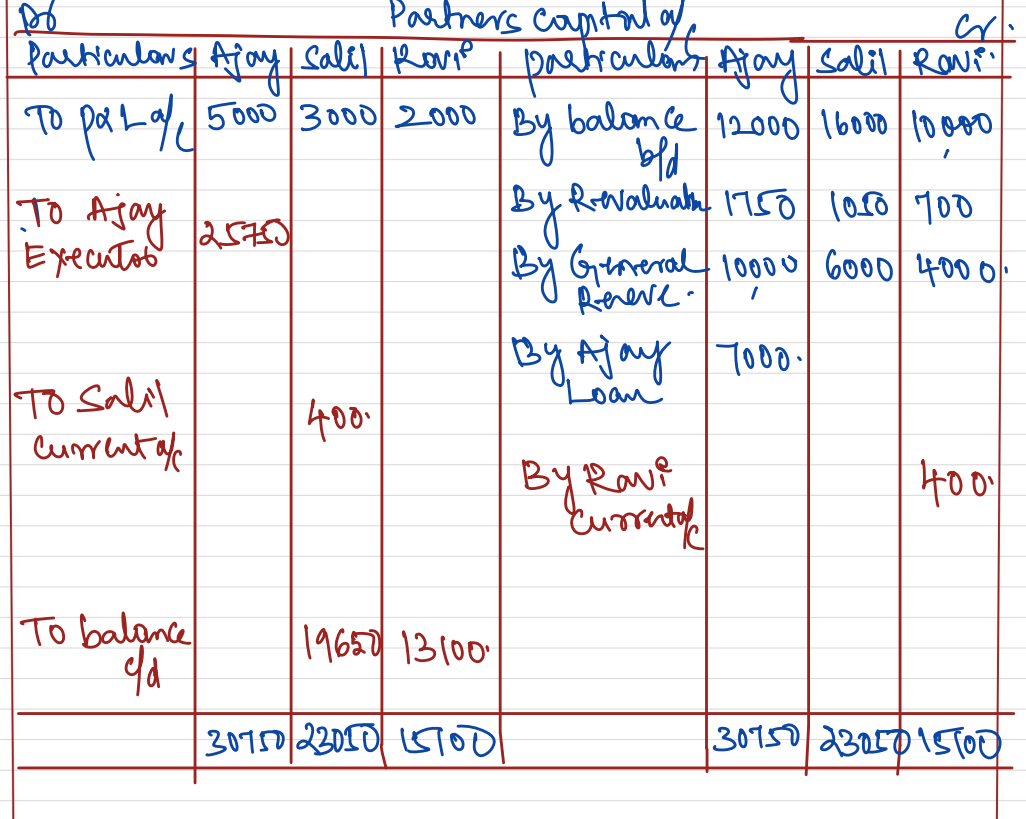 Dr Partners capital a/c Cr.
Particulars Ajay Salil Ravi particulars Ajay Salil Ravi
To P&L a/c 5000 3000 2000 By balance b/d 12000 16000 10000
To Ajay Executor 25750 By Revaluatn 1750 1050 700
By General Reserve. 10000 6000 4000.
By Ajay Loan 7000.
To Salil current a/c 400.
By Ravi current a/c 400.
To balance c/d 19650 13100.
30750 23050 15100 30750 23050 15100